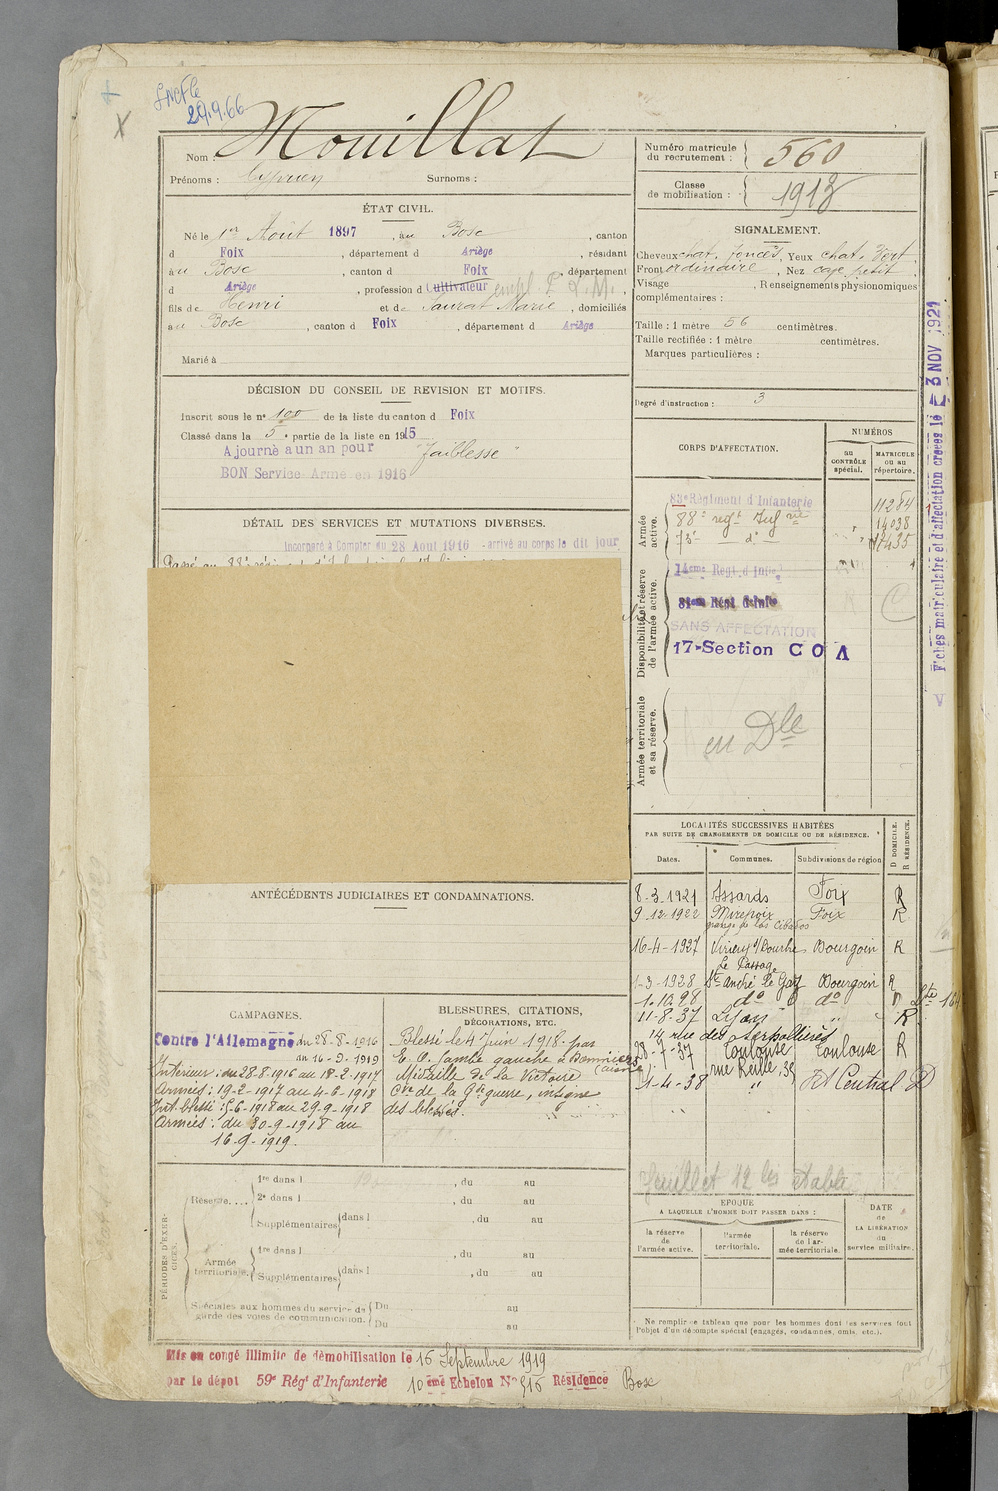 29.9.66
X
Nom : Mouillat
Prénoms : Cyprien Surnoms :
ÉTAT CIVIL.
Né le 1er Août 1897, au Bosc, canton
d Foix, département d Ariège, résidant
au Bosc, canton d Foix, département
d Ariège, profession d Cultivateur empl. P.L.M.
fils de Henri et de Saurat Marie, domiciliés
au Bosc, canton d Foix, département d Ariège
Marié à
DÉCISION DU CONSEIL DE REVISION ET MOTIFS.
Inscrit sous le n° 100 de la liste du canton d Foix
Classé dans la 5e partie de la liste en 1915
Ajourné a un an pour "faiblesse"
BON Service Armé en 1916
DÉTAIL DES SERVICES ET MUTATIONS DIVERSES.
Incorporé à Compter du 28 Août 1916 - arrivé au corps le dit jour
Passé au 88e
ANTÉCÉDENTS JUDICIAIRES ET CONDAMNATIONS.
CAMPAGNES.
Contre l'Allemagne du 28-8-1916
au 16-9-1919
Intérieur : du 28-8-1916 au 18-2-1917
Armées : 19-2-1917 au 4-6-1918
Int. blessé : 5-6-1918 au 29-9-1918
Armées : du 30-9-1918 au
16-9-1919.
BLESSURES, CITATIONS,
DÉCORATIONS, ETC.
Blessé le 4 Juin 1918 par
E. O. jambe gauche à
Médaille de la Victoire
Cve de la Gde guerre, insigne
des blessés.
PÉRIODES D'EXERCICES.
Réserve....
1re dans l , du au
2e dans l , du au
Supplémentaires dans l , du au
Armée territoriale.
1re dans l , du au
Supplémentaires dans l , du au
Spéciales aux hommes du service de garde des voies de communication.
Du au
Du au
Mis en congé illimité de démobilisation le 16 Septembre 1919
par le dépôt 59e Régt d'Infanterie 10ème Echelon N° 516 Résidence Bosc
Numéro matricule
du recrutement : 560
Classe
de mobilisation : 1918
SIGNALEMENT.
Cheveux chat. foncés, Yeux chat. vert
Front ordinaire, Nez cave petit
Visage , Renseignements physionomiques
complémentaires :
Taille : 1 mètre 56 centimètres.
Taille rectifiée : 1 mètre centimètres.
Marques particulières :
Degré d'instruction : 3
CORPS D'AFFECTATION.
NUMÉROS
au
CONTRÔLE
spécial.
MATRICULE
ou au
répertoire.
Armée
active.
83e Régiment d'Infanterie 11284
88e regt Infrie 14038
73e do 17435
Disponibilité et réserve
de l'armée active.
14eme Regt d'Infie
81eme Régt d'Infie
SANS AFFECTATION
17e Section C O A
Armée territoriale
et sa réserve.
en Dle
Fiches matriculaire et d'affectation créées le 3 NOV 1921
LOCALITÉS SUCCESSIVES HABITÉES
PAR SUITE DE CHANGEMENTS DE DOMICILE OU DE RÉSIDENCE.
D DOMICILE.
R RÉSIDENCE.
Dates. Communes. Subdivisions de région
8-3-1921 Issards Foix R
9-12-1922 Mirepoix Foix R
16-4-1927 Bourgoin R
Le Passage
1-3-1928 St André le Gaz Bourgoin R
1-10-28 do do D
11-8-37 Lyon " R
14 rue des
28-7-37 Toulouse Toulouse R
rue Reille, 35
1-4-38 " Central D
feuillet 12 bis établi
EPOQUE
A LAQUELLE L'HOMME DOIT PASSER DANS :
la réserve
de
l'armée active.
l'armée
territoriale.
la réserve
de l'ar-
mée territoriale.
DATE
de
LA LIBÉRATION
du
service militaire.
Ne remplir ce tableau que pour les hommes dont les services font
l'objet d'un décompte spécial (engagés, condamnés, omis, etc.).